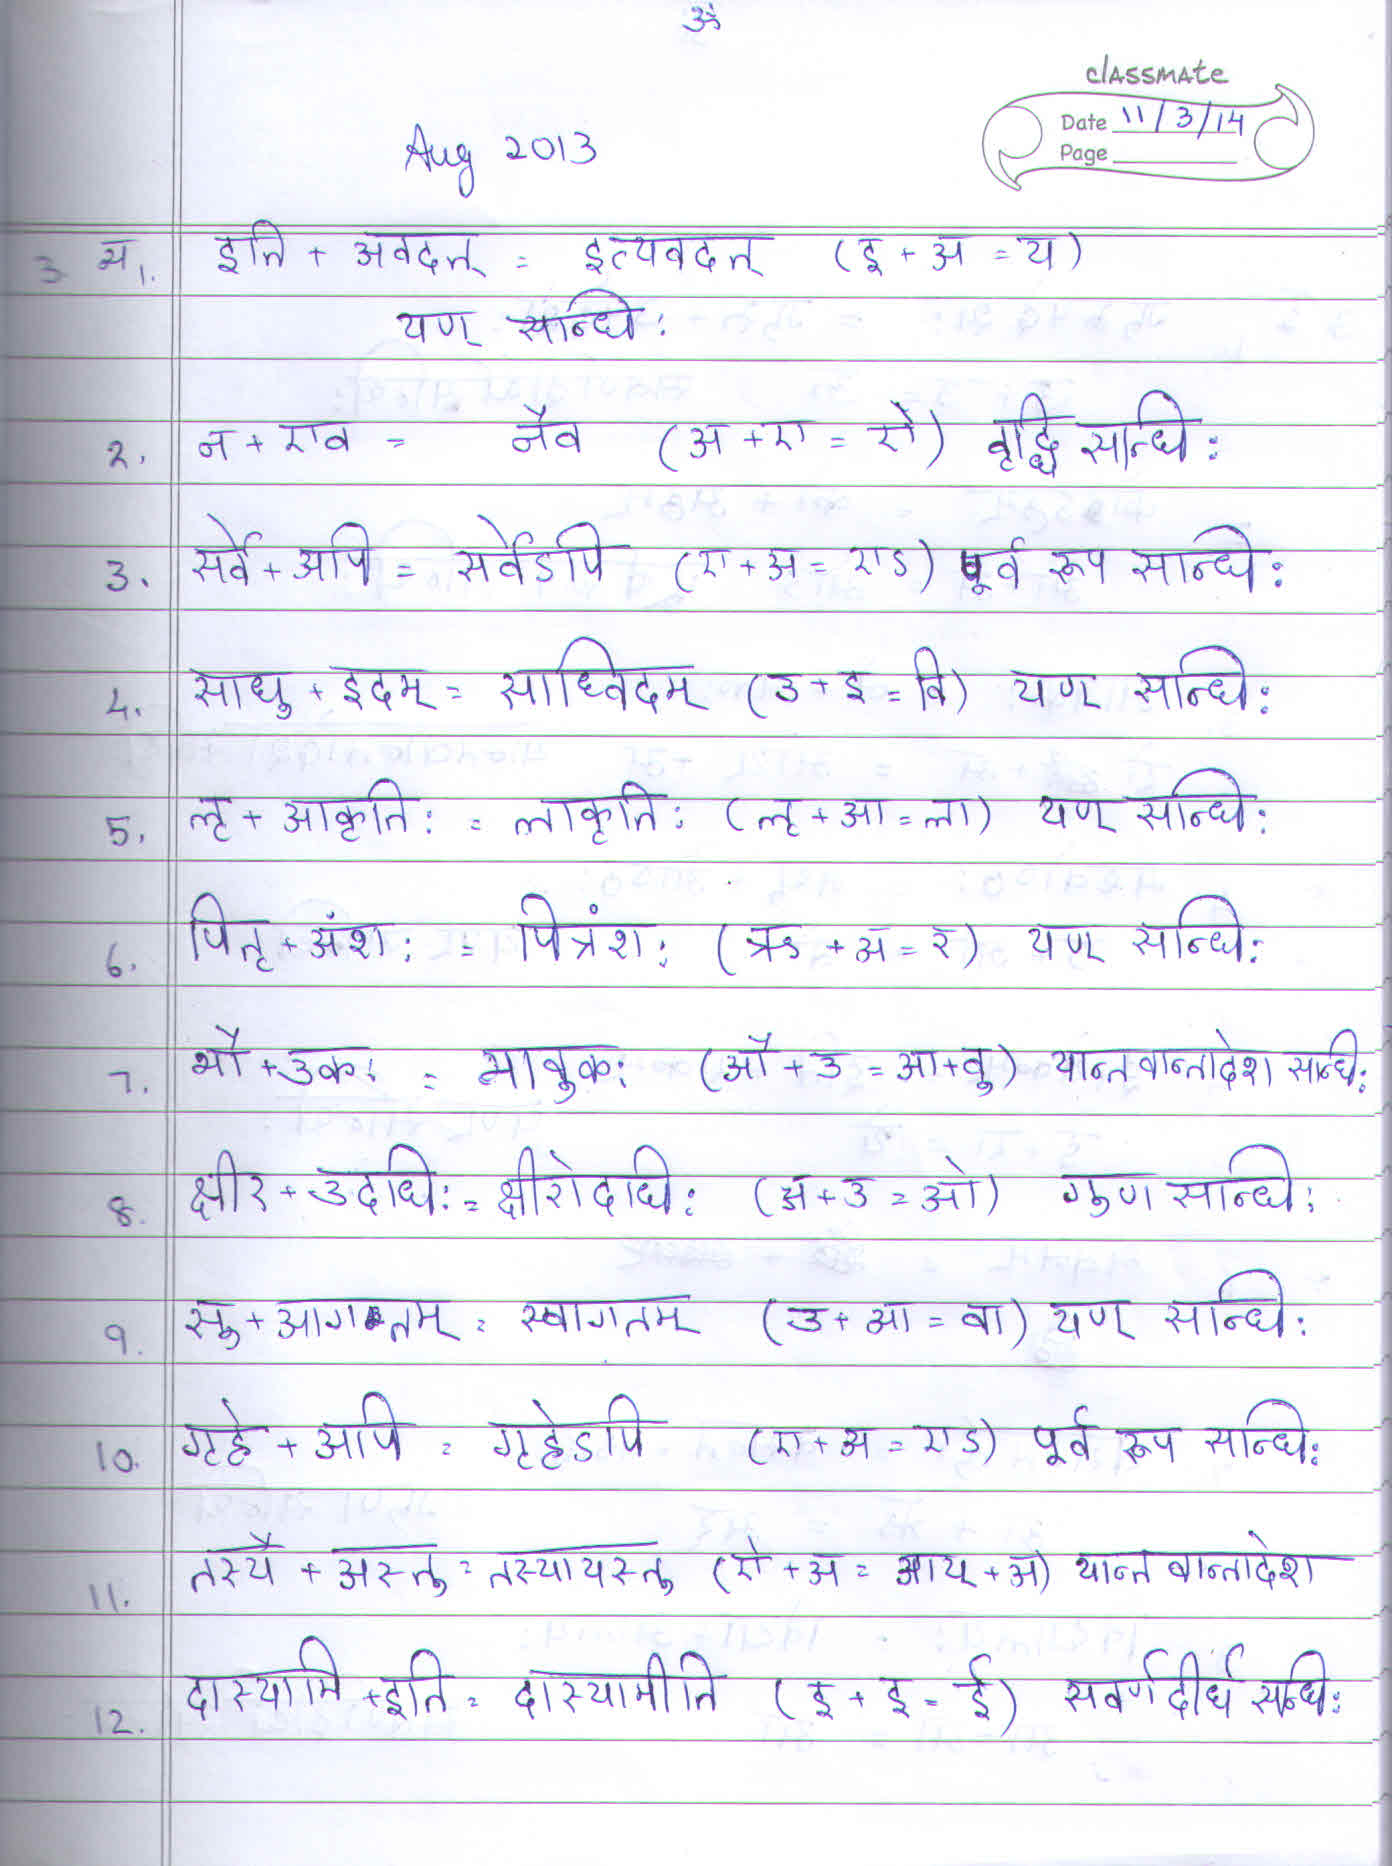 ॐ
classmate
Date 11/3/14
Page
Aug 2013
3 अ1. इति + अवदत् = इत्यवदत् (इ + अ = य)
यण् सन्धि:
2. न + एव = नैव (अ + ए = ऐ) वृद्धि सन्धि:
3. सर्वे + अपि = सर्वेऽपि (ए + अ = एऽ) पूर्व रूप सन्धि:
4. साधु + इदम् = साध्विदम् (उ + इ = वि) यण् सन्धि:
5. लृ + आकृति: = लाकृति: (लृ + आ = ला) यण् सन्धि:
6. पितृ + अंश: = पित्रंश: (ऋ + अ = र) यण् सन्धि:
7. भौ + उक: = भावुक: (औ + उ = आ + वु) यान्तवान्तादेश सन्धि:
8. क्षीर + उदधि: = क्षीरोदधि: (अ + उ = ओ) गुण सन्धि:
9. सु + आगतम् = स्वागतम् (उ + आ = वा) यण् सन्धि:
10. गृहे + अपि = गृहेऽपि (ए + अ = एऽ) पूर्व रूप सन्धि:
11. तस्यै + अस्तु = तस्यायस्तु (ऐ + अ = आय् + अ) यान्त वान्तादेश
12. दास्यामि + इति = दास्यामीति (इ + इ = ई) सवर्णदीर्घ सन्धि: